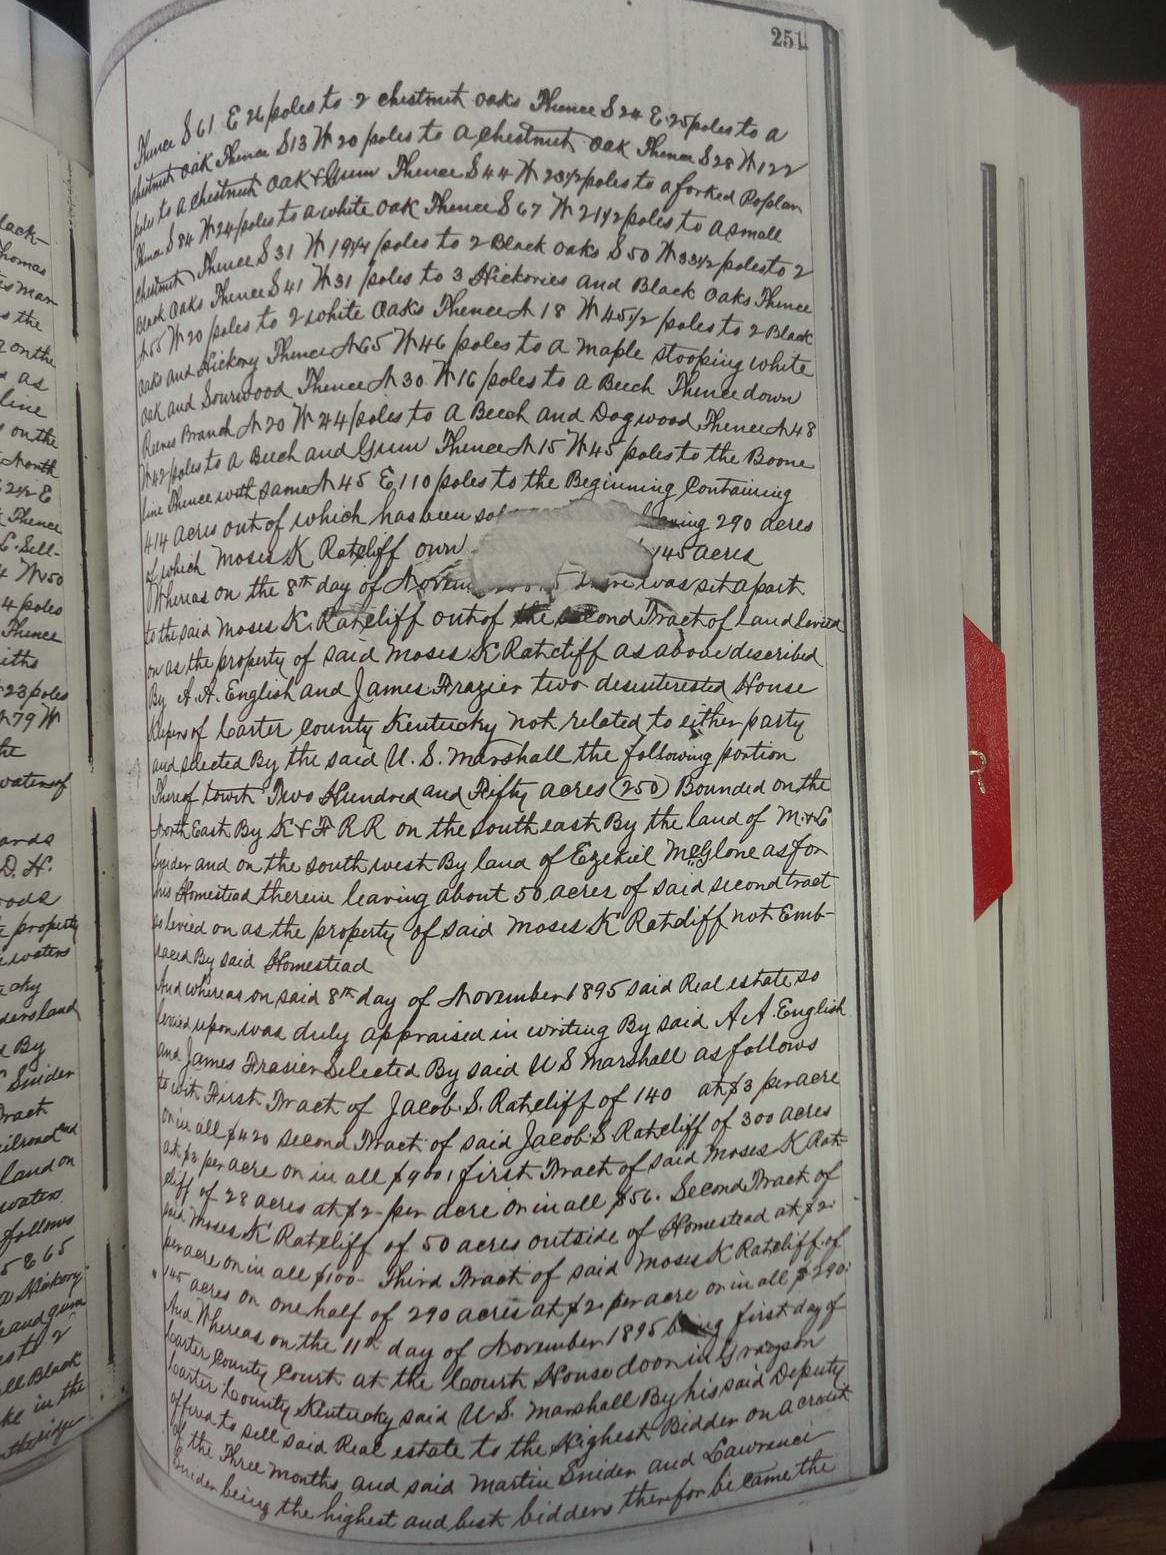 251
Thence S 61 E 26 poles to 2 chestnut oaks Thence S 24 E 25 poles to a
chestnut oak Thence S 13 W 20 poles to a chestnut oak Thence S 28 W 122
poles to a chestnut oak & Gum Thence S 44 W 23 1/2 poles to a forked Poplar
Thence S 84 W 24 poles to a white oak Thence S 67 W 21 1/2 poles to a small
chestnut Thence S 31 W 19 1/4 poles to 2 Black oaks S 50 W 33 1/2 poles to 2
Black oaks Thence S 41 W 31 poles to 3 Hickories and Black oaks Thence
N 55 W 20 poles to 2 white oaks Thence N 18 W 45 1/2 poles to 2 Black
oaks and Hickory Thence N 65 W 46 poles to a maple stooping white
oak and Sourwood Thence N 30 W 16 poles to a Beech Thence down
Reeves Branch N 20 W 24 poles to a Beech and Dogwood Thence N 48
W 42 poles to a Beech and Gum Thence N 15 W 45 poles to the Boone
line Thence with same N 45 E 110 poles to the Beginning Containing
414 acres out of which has been 290 acres
of which Moses K Ratcliff own 145 acres
Whereas on the 8th day of was set apart
to the said Moses K. Ratcliff out of the second Tract of Land levied
on as the property of said Moses K Ratcliff as above described
By A. A. English and James Frazier two desinterested House
Keepers of Carter County Kentucky not related to either party
and selected By the said U. S. Marshall the following portion
Thereof towit Two Hundred and Fifty acres (250) Bounded on the
North East By K & F R R on the south east By the land of M. & C
Snider and on the south west By land of Ezekiel McGlone as for
his Homestead therein leaving about 50 acres of said second tract
so levied on as the property of said Moses K Ratcliff not Emb-
raced By said Homestead
And whereas on said 8th day of November 1895 said Real estate so
levied upon was duly appraised in writing By said A A. English
and James Frasier Selected By said U S Marshall as follows
to wit First Tract of Jacob. S. Ratcliff of 140 at $3 per acre
or in all $420 second Tract of said Jacob. S Ratcliff of 300 acres
at $3 per acre or in all $900, first Tract of said Moses K Rat-
cliff of 28 acres at $2- per acre or in all $56. Second Tract of
said Moses K Ratcliff of 50 acres outside of Homestead at $2.
per acre or in all $100- Third Tract of said Moses K Ratcliff of
145 acres or one half of 290 acres at $2. per acre or in all $290.
And Whereas on the 11th day of November 1895 being first day of
Carter County Court at the Court House door in Grayson
Carter County Kentucky said U. S. Marshall By his said Deputy
offered to sell said Real estate to the Highest Bidder on a credit
of the Three months and said Martin Snider and Lawrence
Snider being the highest and best bidders therefor became the